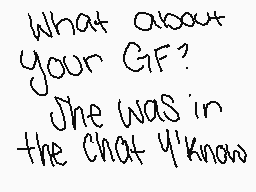 What about
your GF?
She was in
the chat y'know